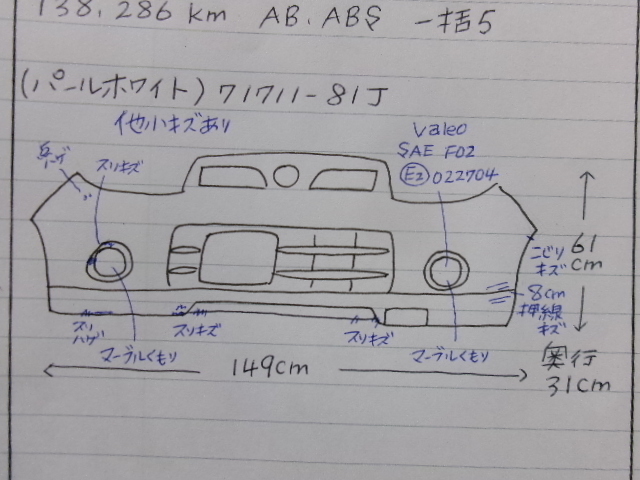 138,286 km AB、ABS 一括5
(パールホワイト) 71711-81J
他小キズあり
Valeo
SAE F02
E2 022704
スリキズ
こじり
キズ
61
cm
8cm
押線
キズ
スリ
ハゲ
スリキズ
スリキズ
マーブルくもり
マーブルくもり
149cm
奥行
31cm